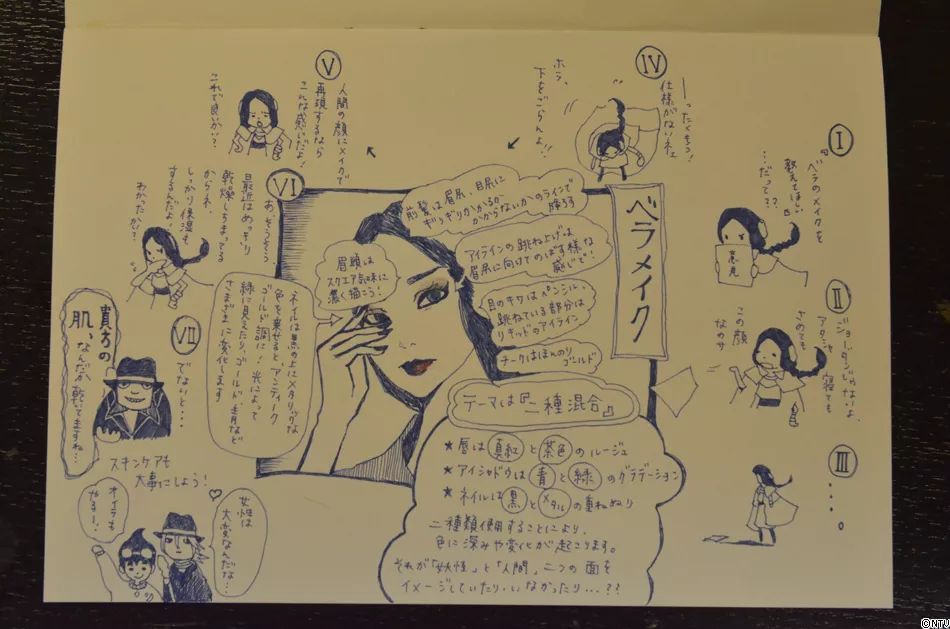 ベラメイク
I
『ベラのメイクを
教えてほしい』
…だって??
意見
II
ジョーダンじゃないよ
アタシャ寝ても
さめても
この顔
なのサ
III
・・・・。
IV
ーったくもう!
仕様がないネェ
ホラ、
下をごらんよ!!
V
人間の顔にメイクで
再現するなら
こんな感じだよ!
これで良いかい?
VI
あ、そうそう、
最近はめっきり
乾燥しちまってる
からネ、
しっかり保湿も
するんだよ!
わかったかい?
VII
でないと…
貴方の
肌、
なんだか乾いてますね…
スキンケアも
大事にしよう!
女性は
大変なんだな…
オイラも
やるー!
前髪は眉尻、目尻に
ギリギリかかるか
かからないかのラインで
降ろす
アイラインの跳ね上げは
眉尻に向けてのばす様な
感じで!
目のキワはペンシル、
跳ねている部分は
リキッドのアイライン
チークはほんのり
ゴールド
眉頭は
スクエア気味に
濃く描こう!
ネイルは黒の上にメタリックな
色を乗せると、アンティーク
ゴールド調に!光によって
緑に見えたり、ゴールド、青など
さまざまに変化します
テーマは『二種混合』
★唇は真紅と茶色のルージュ
★アイシャドウは青と緑のグラデーション
★ネイルは黒とメタルの重ねぬり
二種類使用することにより、
色に深みや変化が起こります。
それが「妖怪」と「人間」二つの面を
イメージしていたり・いなかったり…??
©NTV